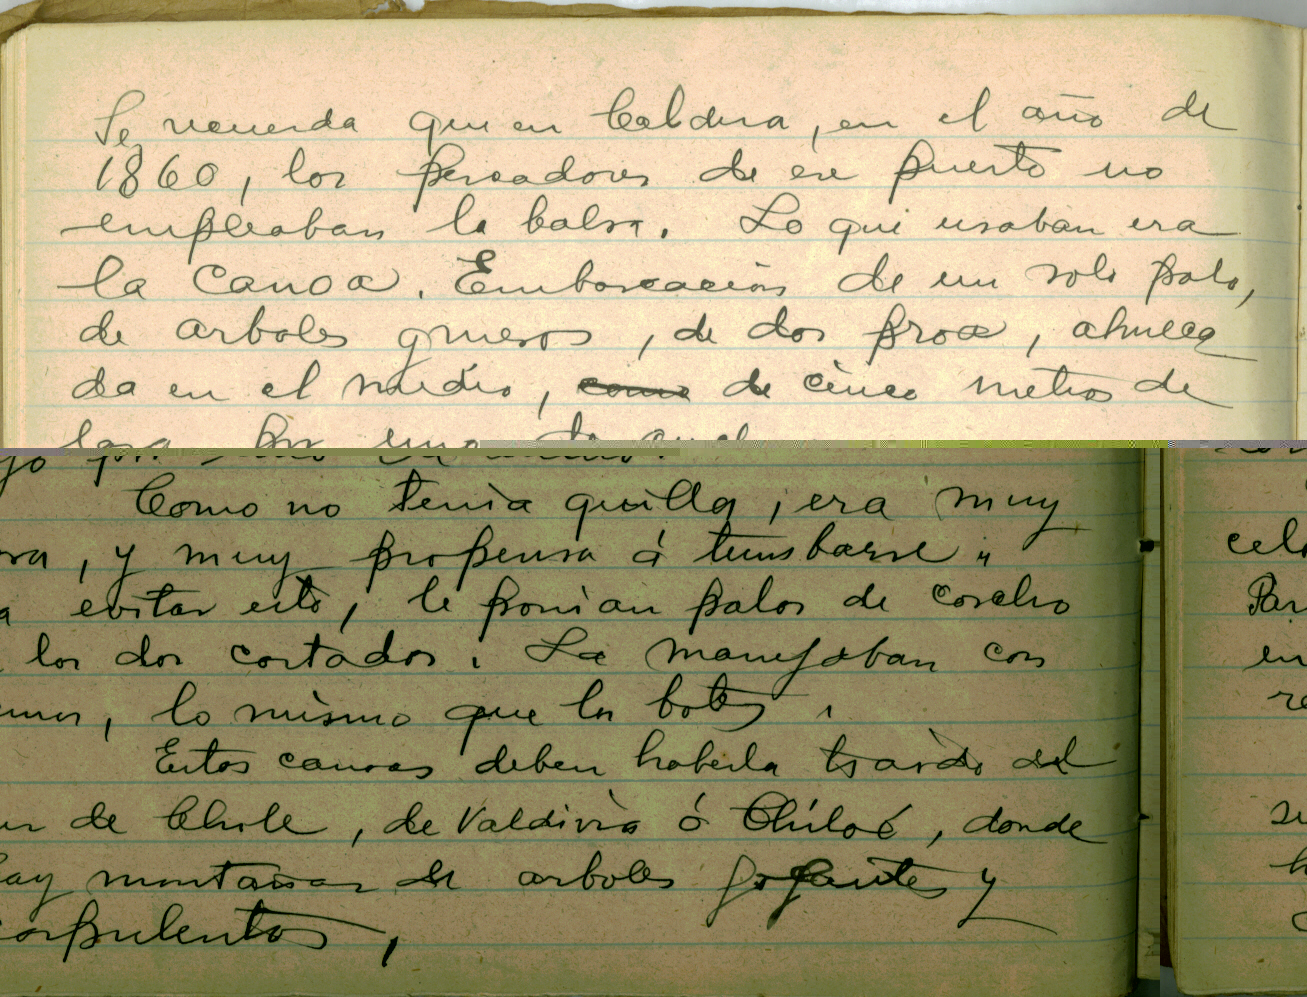 Se recuerda que en Caldera, en el año de
1860, los pescadores de ese puerto no
empleaban la balsa. Lo que usaban era
la canoa. Embarcación de un solo palo,
de arboles gruesos, de dos proa, ahueca
da en el medio, como de cinco metros de
largo por uno de
Como no tenia quilla, era muy
, y muy propensa á tumbarse,
evitar esto, le ponian palos de corcho
los dos costados. La manejaban con
, lo mismo que los botes.
Estas canoas deben haberla traido del
de Chile, de Valdivia ó Chiloé, donde
hay montañas de arboles gigantes y
corpulentos,